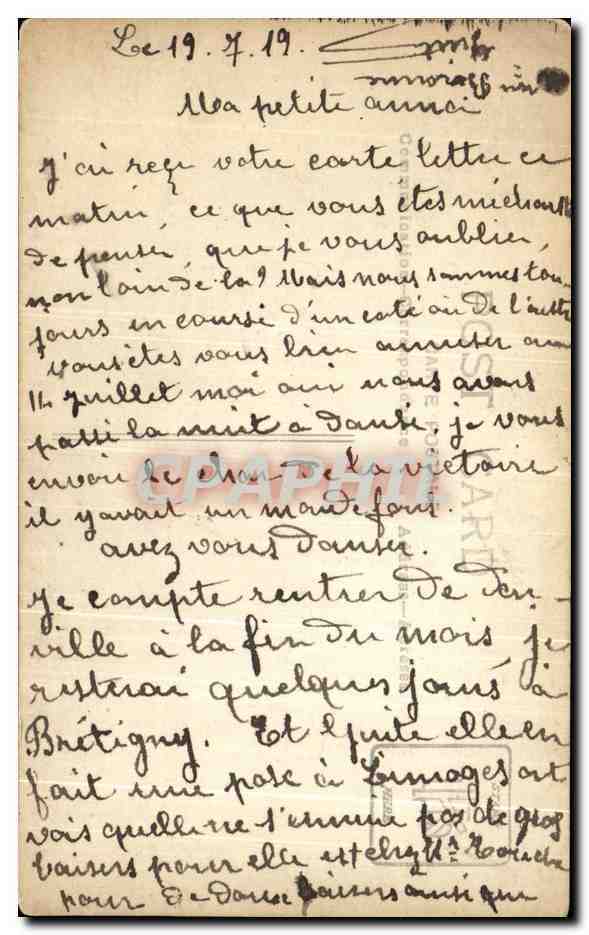 Le 19.7.19.
Ma petite annoi
J'ai reçu votre carte lettre ce
matin, ce que vous êtes méchante
de penser, que je vous oublier,
non loin de la, Mais nous sommes tou-
jours en course d'un coté ou de l'autre
Vous êtes vous bien amuser au
14 Juillet moi oui nous avons
passé la nuit à danse. je vous
envoi le char de la victoire
il y avait un monde fous.
avez vous danser.
Je compte rentrer de
ville à la fin du mois, je
resterai quelques jours à
Brétigny. Et elle en
fait une pose à Limoges
vois quelle ne s'ennuie pas de gros
baisers pour elle et chez
pour de doux baisers ainsi que
POST CARD
CPAPHIL